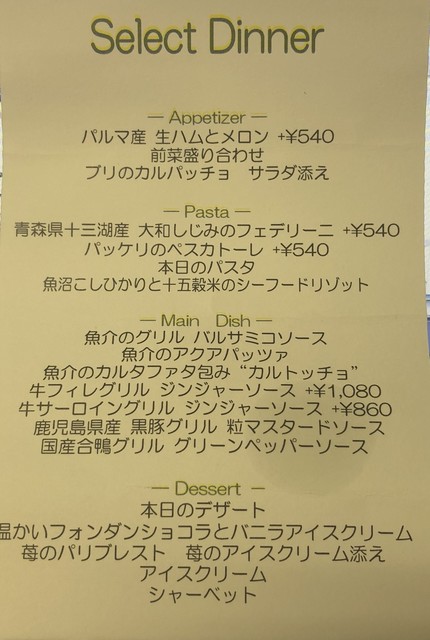 Select Dinner
— Appetizer —
パルマ産 生ハムとメロン +¥540
前菜盛り合わせ
ブリのカルパッチョ サラダ添え
— Pasta —
青森県十三湖産 大和しじみのフェデリーニ +¥540
パッケリのペスカトーレ +¥540
本日のパスタ
魚沼こしひかりと十五穀米のシーフードリゾット
— Main Dish —
魚介のグリル バルサミコソース
魚介のアクアパッツァ
魚介のカルタファタ包み “カルトッチョ”
牛フィレグリル ジンジャーソース +¥1,080
牛サーロイングリル ジンジャーソース +¥860
鹿児島県産 黒豚グリル 粒マスタードソース
国産合鴨グリル グリーンペッパーソース
— Dessert —
本日のデザート
温かいフォンダンショコラとバニラアイスクリーム
苺のパリブレスト 苺のアイスクリーム添え
アイスクリーム
シャーベット